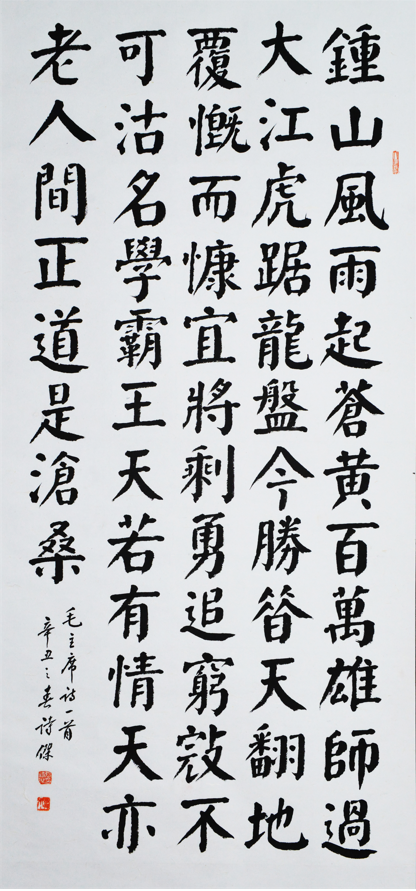 鍾山風雨起蒼黄百萬雄師過
大江虎踞龍盤今勝昔天翻地
覆慨而慷宜將剩勇追窮寇不
可沽名學霸王天若有情天亦
老人間正道是滄桑
毛主席诗一首
辛丑之春詩傑